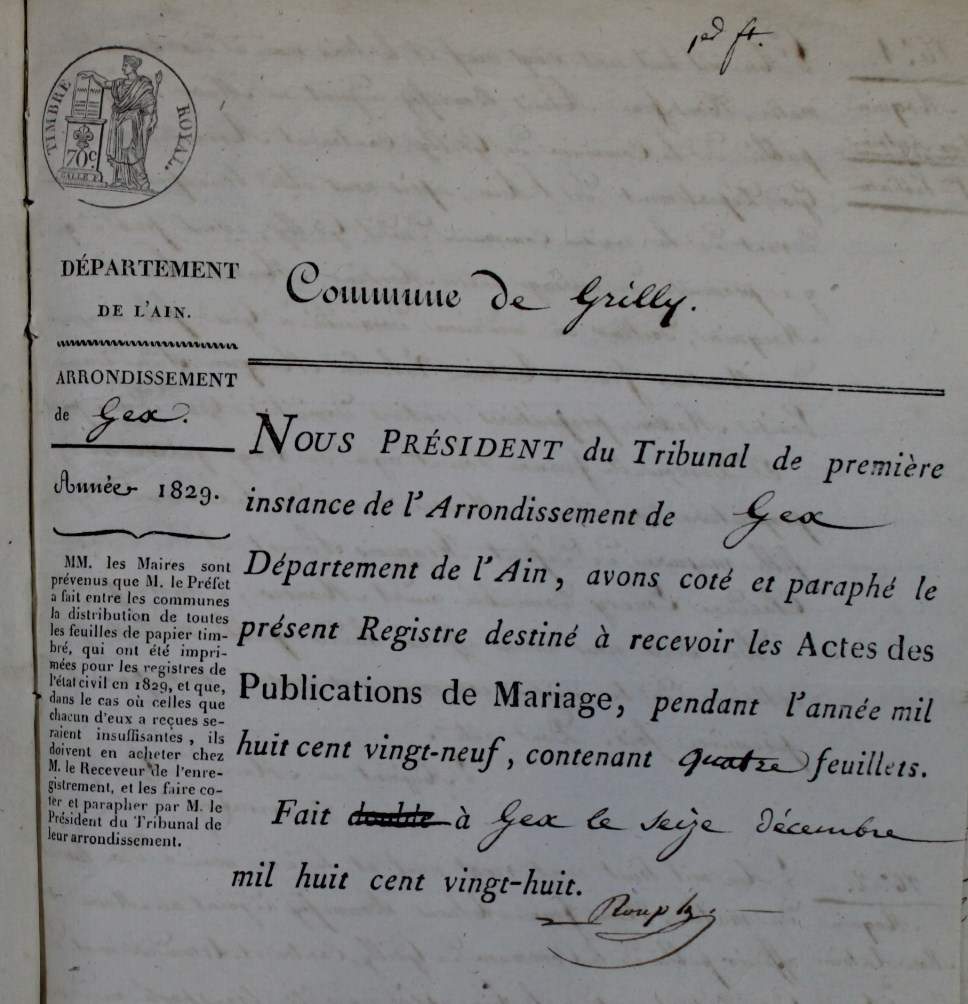 1er ft.
TIMBRE ROYAL.
70c
DÉPARTEMENT
DE L'AIN.
ARRONDISSEMENT
de Gex.
Année 1829.
MM. les Maires sont
prévenus que M. le Préfet
a fait entre les communes
la distribution de toutes
les feuilles de papier tim-
bré, qui ont été impri-
mées pour les registres de
l'état civil en 1829, et que,
dans le cas où celles que
chacun d'eux a reçues se-
raient insuffisantes, ils
doivent en acheter chez
M. le Receveur de l'enre-
gistrement, et les faire co-
ter et parapher par M. le
Président du Tribunal de
leur arrondissement.
Commune de Grilly.
NOUS PRÉSIDENT du Tribunal de première
instance de l'Arrondissement de Gex
Département de l'Ain, avons coté et paraphé le
présent Registre destiné à recevoir les Actes des
Publications de Mariage, pendant l'année mil
huit cent vingt-neuf, contenant quatre feuillets.
Fait double à Gex le seize décembre
mil huit cent vingt-huit.